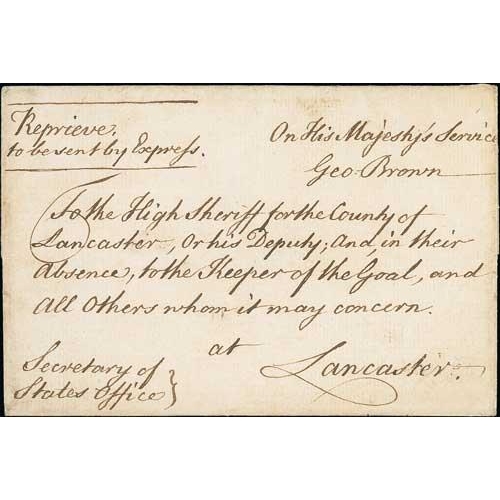 Reprieve.
to be sent by Express.
On His Majesty's Service
Geo Brown
To the High Sheriff for the County of
Lancaster, Or his Deputy; And in their
Absence, to the Keeper of the Goal, and
All Others whom it may concern.
at
Lancaster.
Secretary of
States Office